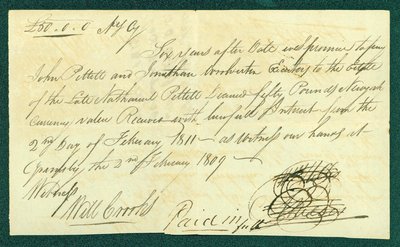 £50 . 0 . 0 N Y Cy
Six years after Date we promise to pay
John Pettett and Jonathan Executors to the Estate
of the Late Nathaniel Pettett Deceased fifty Pounds Newyork
Currency value Received with lawfull Interest from the
2nd Day of February 1811 — as Witness our hands at
the 2nd February 1809 —
Witness
Will Crooks
Paid in full